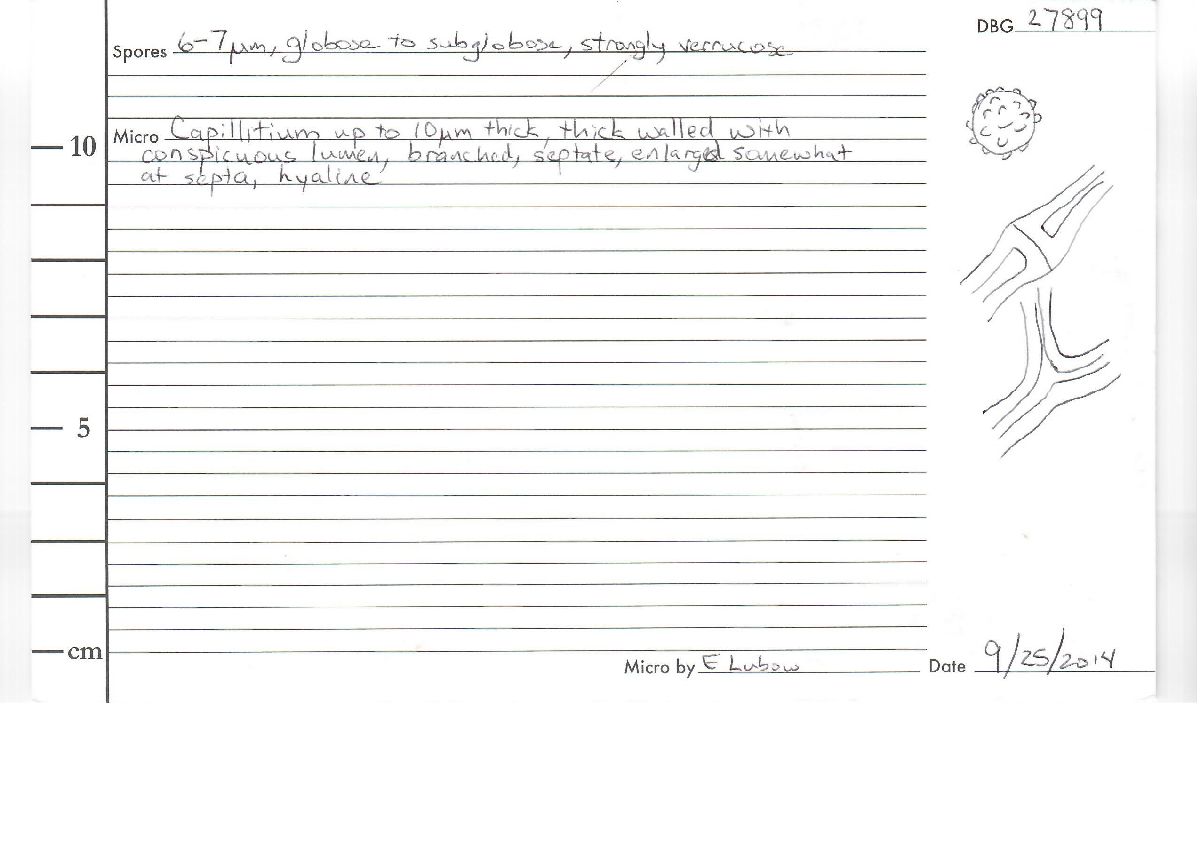 DBG 27899
Spores 6-7µm, globose to subglobose, strongly verrucose
Micro Capillitium up to 10µm thick, thick walled with
conspicuous lumen, branched, septate, enlarged somewhat
at septa, hyaline
10
5
cm
Micro by E Lubow
Date 9/25/2014